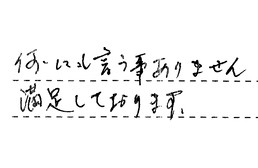 何にも言う事ありません
満足しております。